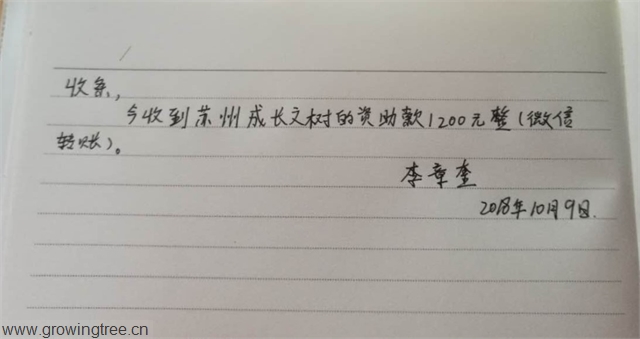 收条，
今收到苏州成长文树的资助款1200元整（微信
转账）。
李章奎
2018年10月9日.
www.growingtree.cn